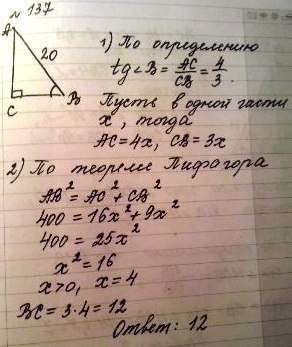 № 137
A
20
C
B
1) По определению
tg∠B = AC/CB = 4/3.
Пусть в одной части
x, тогда
AC = 4x, CB = 3x
2) По теореме Пифагора
AB² = AC² + CB²
400 = 16x² + 9x²
400 = 25x²
x² = 16
x>0, x = 4
BC = 3·4 = 12
Ответ: 12